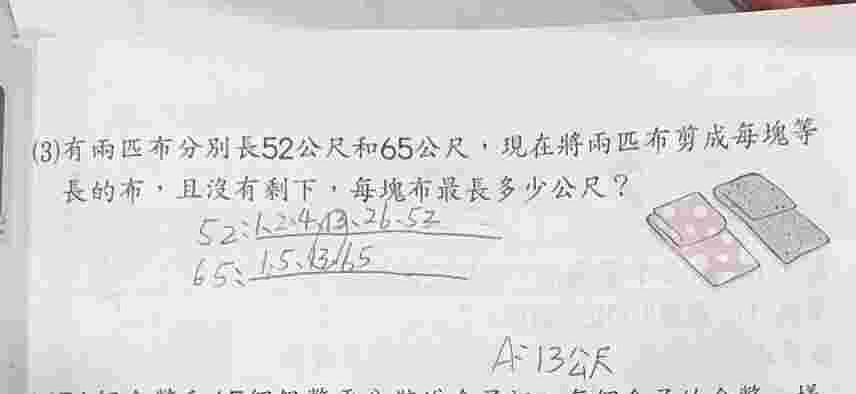 (3)有兩匹布分別長52公尺和65公尺，現在將兩匹布剪成每塊等
長的布，且沒有剩下，每塊布最長多少公尺？
52:1、2、4、13、26、52
65:1、5、13、65
A:13公尺